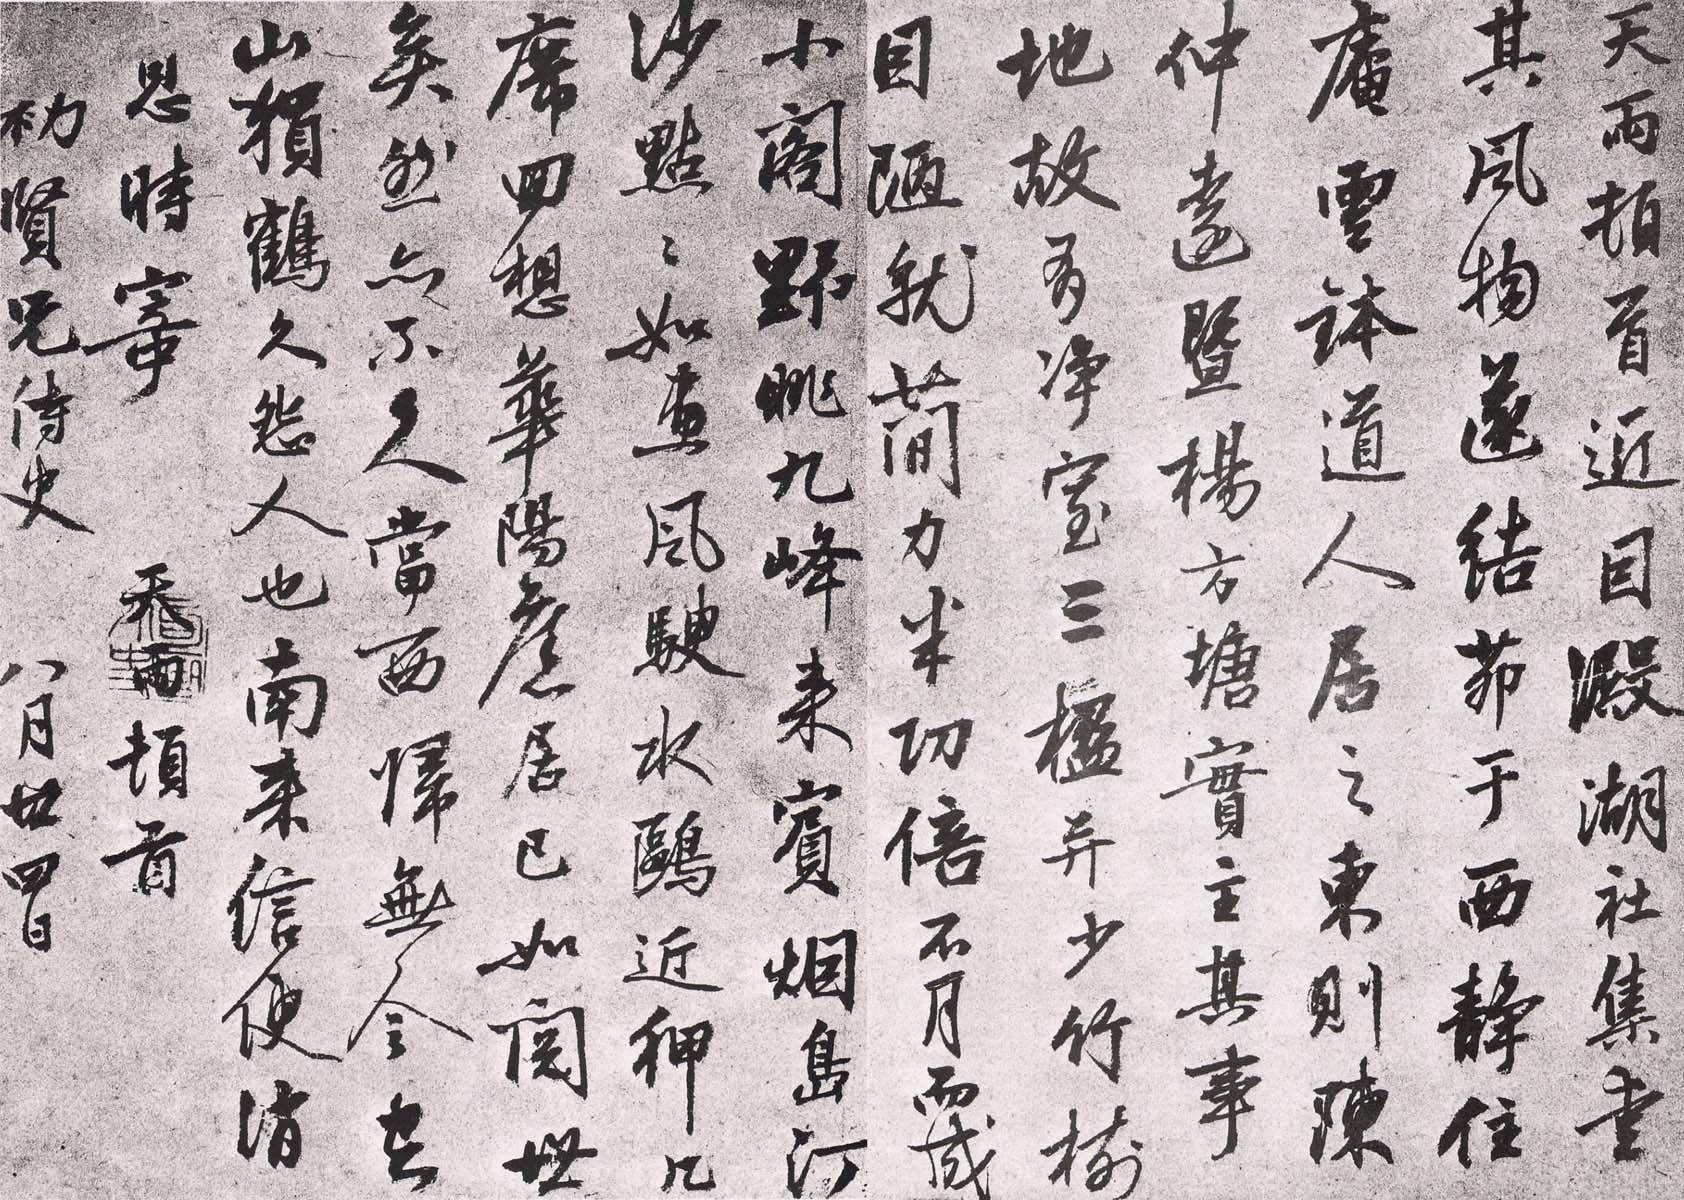 天雨頓首近因澱湖社集愛
其風物遂結茆于西靜住
庵雲鉢道人居之東則陳
仲遠暨楊方塘實主其事
地故有淨室三楹弃少竹樹
因陋就簡力半功倍不月而成
小閣野眺九峰来賓烟島汀
沙點〻如画風駛水鷗近狎几
席回想華陽舊居已如閱世
矣然亦不久當西歸無令空
山猿鶴久怨人也南来信便消
息時寄
天雨頓首
初賢兄侍史 八月廿四日